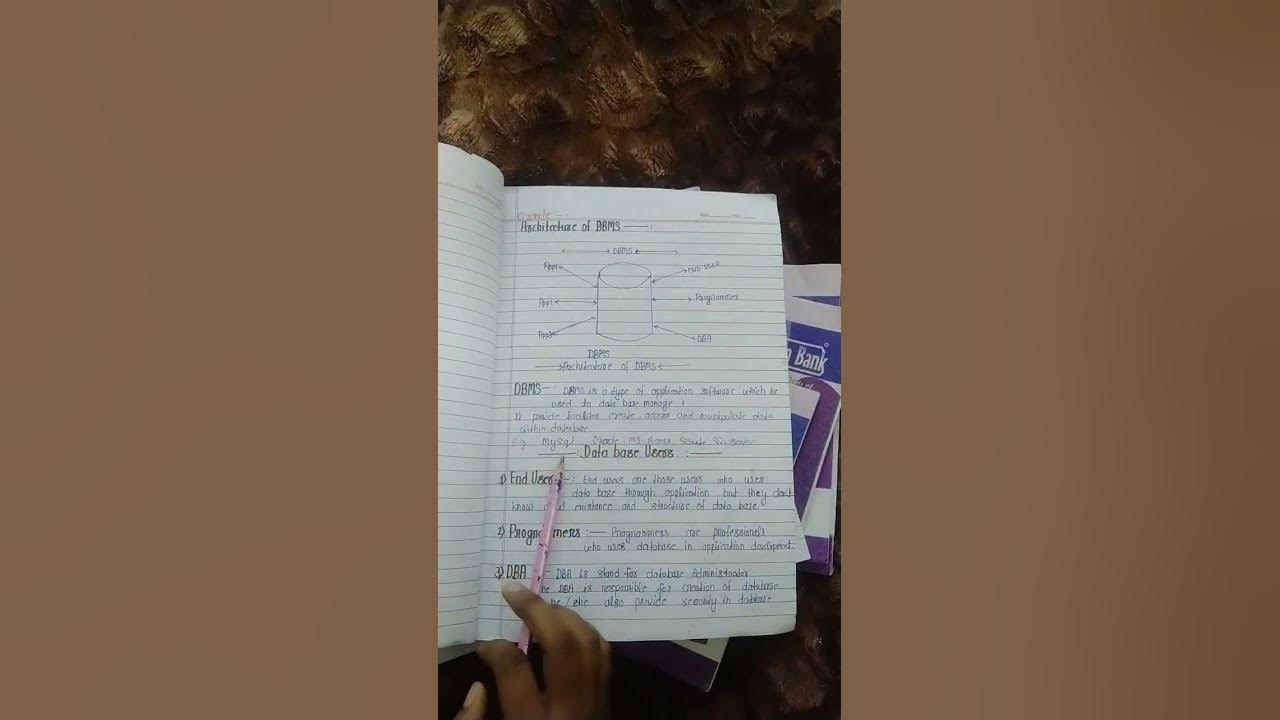 Oracle
Architecture of DBMS
DBMS
App1
END USER
App2
Programmer
App3
DBA
DBMS
Architecture of DBMS
DBMS: DBMS is a type of application software which be
used to data base manage.
It provide facilities create, access and manipulate data
within database
Eg. MySql, Oracle, MS-Access, SQL Server
: Data base Users :
1) End User: End users are those users who uses
data base through application but they don't
know existance and structure of data base.
2) Programmers: Programmers are professionels
who uses database in application development
3) DBA DBA is stand for database Administrator
DBA is responsible for creation of database
he/she also provide security in database
Bank